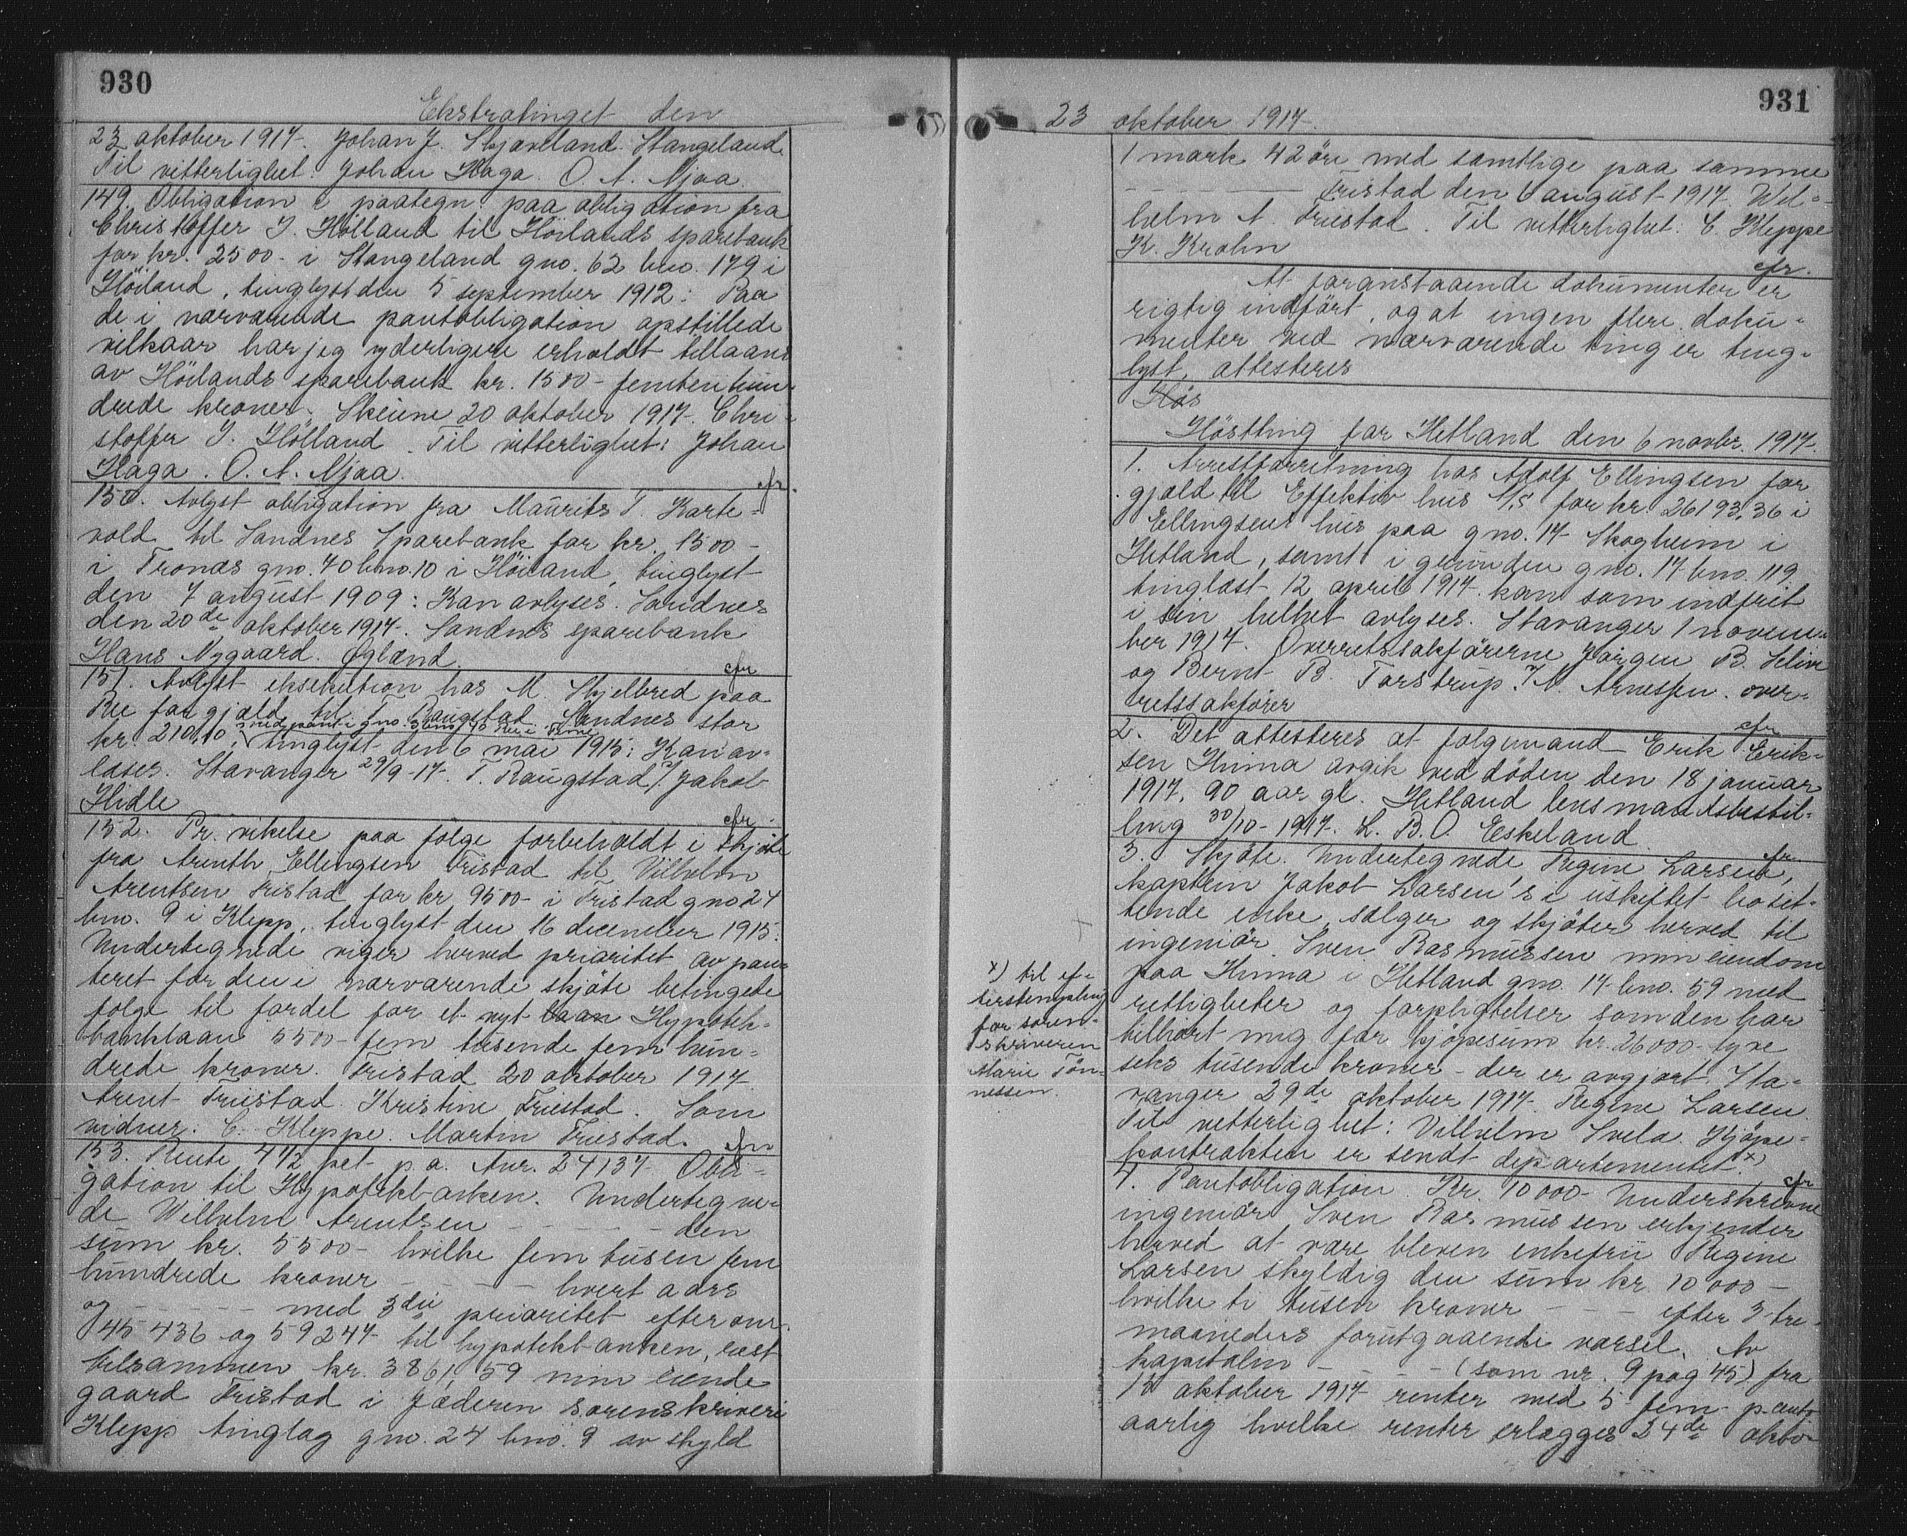 930
Ekstratinget den
23 oktober 1917. Johan J. Skjæveland. Stangeland.
Til vitterlighet: Johan Haga. O. A. Njaa.
149. Obligation o: paategn. paa obligation fra
Christoffer I. Hölland til Höilands sparebank
for kr. 2500 - i Stangeland gno. 62 bno. 179 i
Höiland, tinglyst den 5 september 1912: Paa
de i nærværende pantobligation opstillede
vilkaar har jeg yderligere erholdt tillaans
av Höilands sparebank kr. 1500 - femten hun-
drede kroner. Skeiene 20 oktober 1917. Chri-
stoffer I. Hölland. Til vitterlighet: Johan
Haga. O. A. Njaa.
cfr.
150. Avlyst obligation fra Maurits T. Karte-
vold til Sandnes Sparebank for kr. 1500 -
i Tronæs gno. 70 bno. 10 i Höiland, tinglyst
den 7 august 1909: Kan avlyses. Sandnes
den 20de oktober 1917. Sandnes sparebank
Hans Nygaard. Øgland.
cfr
151. Avlyst eksekution hos M. Skjelbred paa
Ree for gjæld til T. Raugstad Sandnes stor
kr. 210,10, tinglyst den 6 mai 1915: Kan av-
læses. Stavanger 29/9-17. T. Raugstad /. Jakob
Hidle
cfr.
152. Pr. vikelse paa følge forbeholdt i skjöte
fra Arenth Ellingsen Friestad til Vilhelm
Arentsen Fristad for kr. 9500 - i Fristad gno 24
bno. 9 i Klepp, tinglyst den 16 december 1915.
Undertegnede viger herved prioritet av pan-
teret for den i nærværende skjöte betingede
følge til fordel for et nyt laan Hypotek-
banklaan 5500 - fem tusende fem hun-
drede kroner. Fristad 20 oktober 1917
Arent Friestad. Kristine Friestad. Som
vidner: C. Kleppe. Martin Friestad.
cfr
153. Rente 4 1/2 pct. p.a. Anr. 24137. Obli-
gation til Hypotekbanken. Undertegne-
de Wilhelm Arentsen - - - - - den
sum kr. 5500 - hvilke fem tusen fem
hundrede kroner - - - - - hvert aars
og - - - - - med 3die prioritet efter anr.
45436 og 59247 til hypotekbanken, rest
tilsammen kr. 3861,59 min eiende
gaard Fristad i Jæderen sorenskriveri
Klepp tinglag gno. 24 bno. 9 av skyld
931
23 oktober 1917.
1 mark 42 öre med samtlige paa samme
- - - - - - Fristad den 6 august 1917. Wil-
helm A. Friestad. Til vitterlighet: C. Kleppe
K. Krohn
cfr.
At foranstaaende dokumenter er
rigtig indfört, og at ingen flere doku-
menter ved nærværende ting er ting-
lyst, attesteres
Høs
Höstting for Hetland den 6 novbr. 1917.
1. Arrestforretning hos Adolf Ellingsen for
gjæld til Effektiv hus A/S for kr 26193,36 i
Ellingsens hus paa gno. 17 Skogheim i
Hetland, samt i grunden gno. 17 bno. 119
tinglæst 12 april 1917. kan som indfriet
i sin helhet avlyses. Stavanger 1 novem-
ber 1917. Overretssakförerne Jörgen B. Selvine
og Bernt B. Torstrup. N. Arnessen. over-
retssakförer
cfr
2. Det attesteres at folgemand Erik Erik-
sen Hinna avgik ved döden den 18 januar
1917, 90 aar gl. Hetland lensmandsbestil-
ling 30/10-1917. L. B. O. Eskeland.
cfr
3. Skjöte. Undertegnede Regine Larsen,
kaptein Jakob Larsen's i uskiftet bo sit-
tende enke, sælger og skjöter herved til
ingeniör Sven Rasmussen min eiendom
paa Hinna i Hetland gno. 14 bno. 59 med
rettigheter og forpligtelser som den har
tilhört mig for kjöpesum kr. 26000 - tyve
seks tusende kroner - der er avgjort. Sta-
vanger 29de oktober 1917. Regine Larsen.
Til vitterlighet: Vilhelm Svela. Kjöpe-
kontrakten er sendt departementet. x)
x) til ef-
terstempling
for soren-
skriveren
Marie Tön-
nessen.
cfr
4. Pantobligation. Kr. 10000 - Underskrevne
ingeniör Sven Rasmussen erkjender
herved at være bleven enkefru Regine
Larsen skyldig den sum kr. 10000 -
hvilke ti tusen kroner - - - efter 3 tre
maaneders forutgaaende varsel. Av
kapitalen - - - (som nr. 9 pag 45) fra
12 oktober 1917 renter med 5 fem p.cent
aarlig hvilke renter erlægges 24de okto-